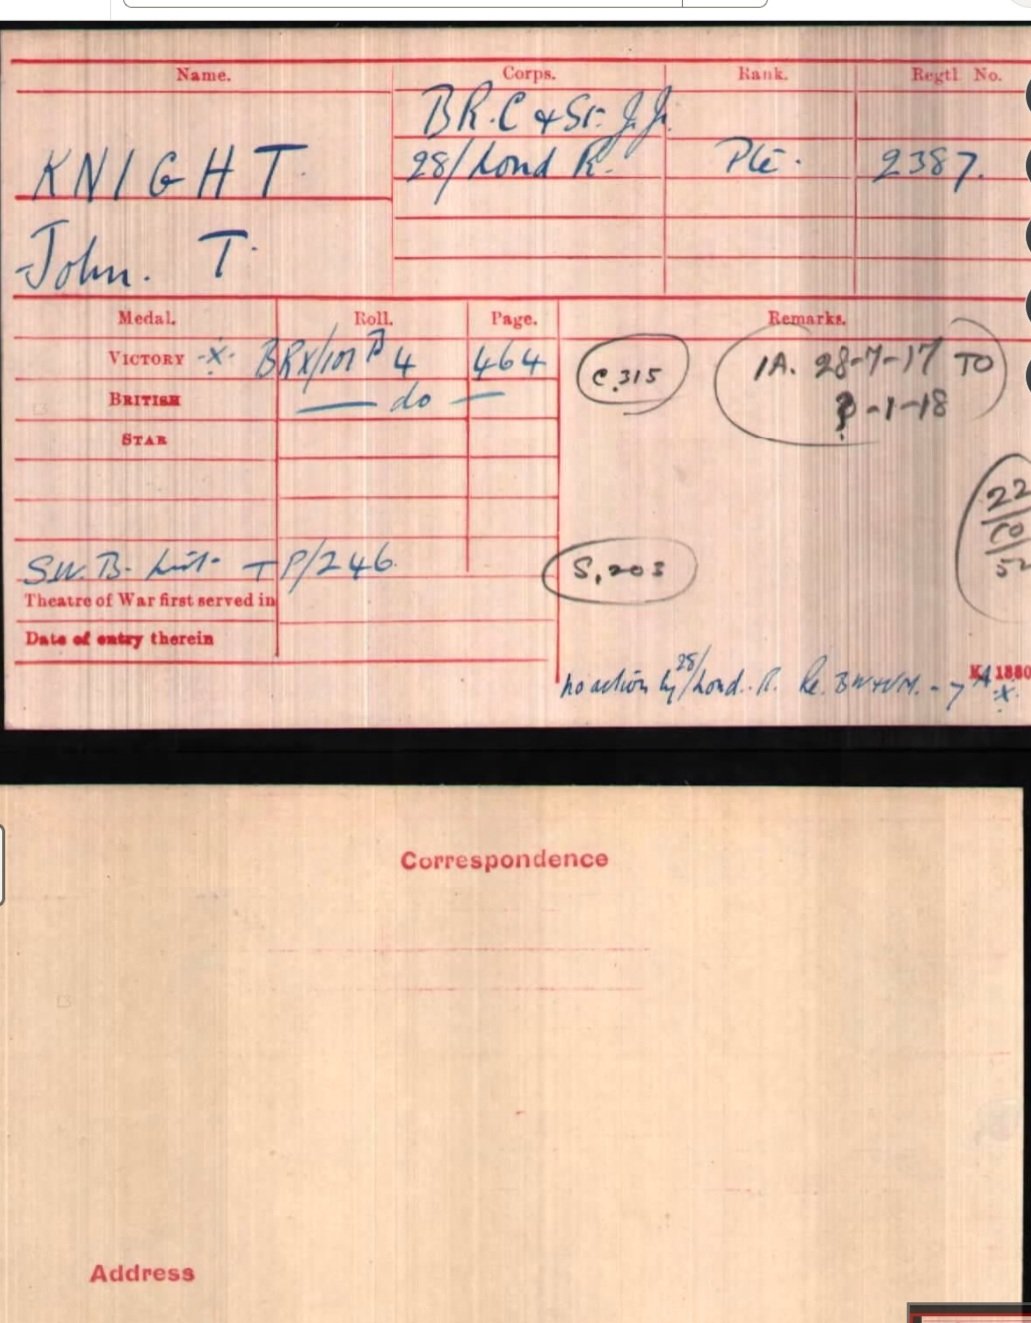 Name. Corps. Rank. Regtl. No.
B R.C & St. J.J.
KNIGHT 28/Lond R. Pte. 2387.
John. T.
Medal. Roll. Page. Remarks.
VICTORY -x- BRX/101 B 4 464 C.315 1A. 28-7-17 TO
BRITISH — do — -1-18
STAR
22
SW. B. List. TP/246. S,203
Theatre of War first served in
Date of entry therein
no action by 28/Lond. R. Re. BW&VM. K 1380
Correspondence
Address